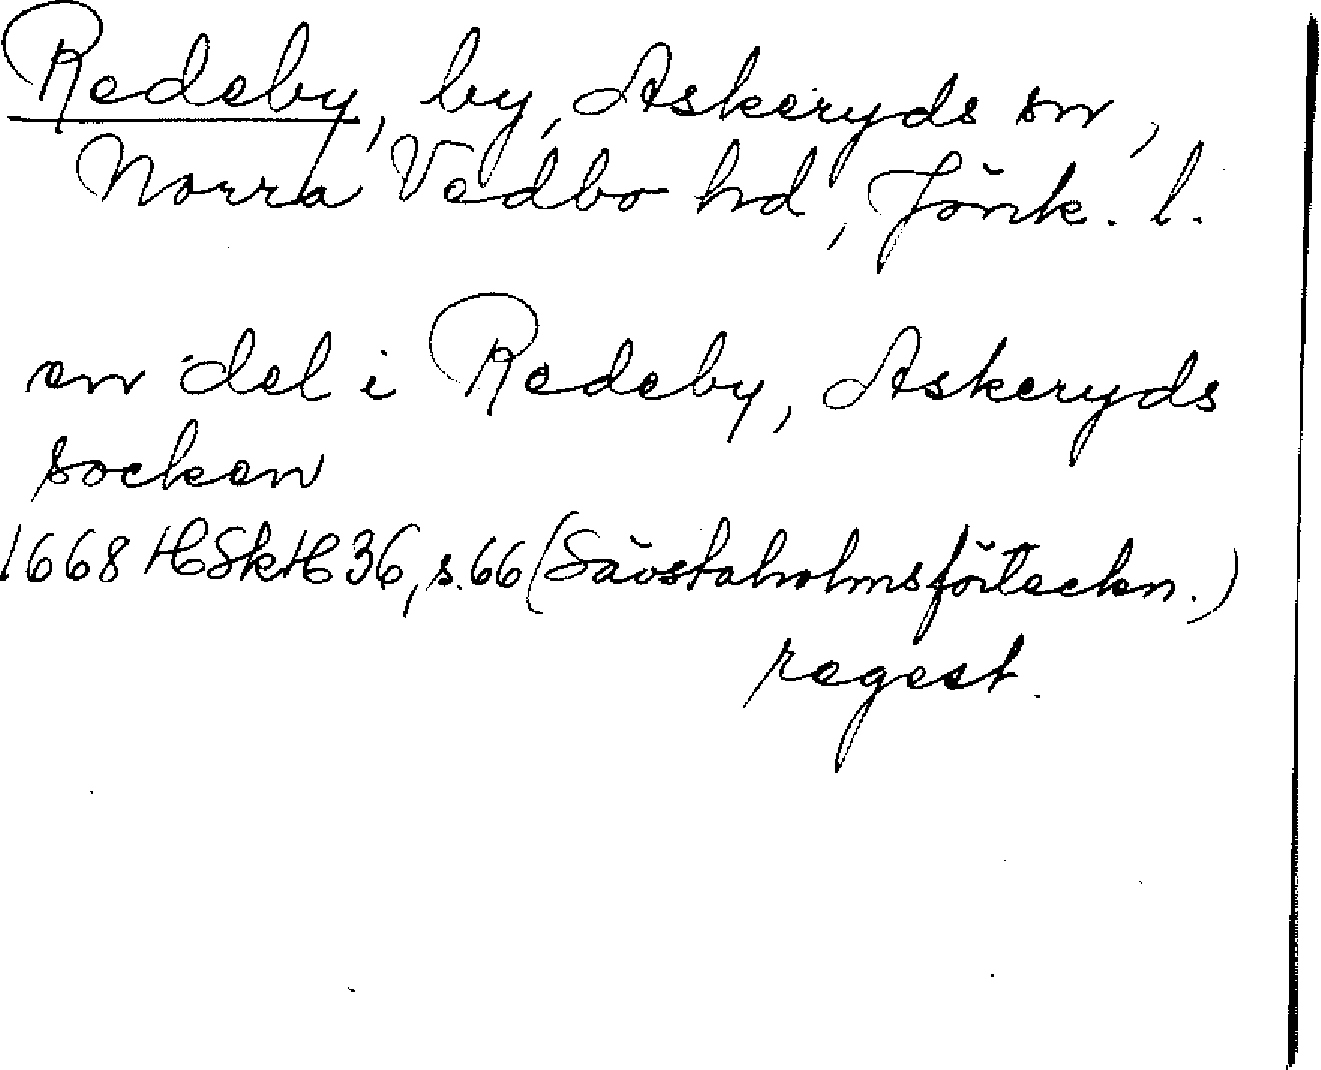 Redeby, by, Askeryds sn,
Norra Vedbo hd, Jönk. l.
en del i Redeby, Askeryds
socken
1668 HSkH 36, s. 66 (Sävstaholmsförteckn.)
regest.